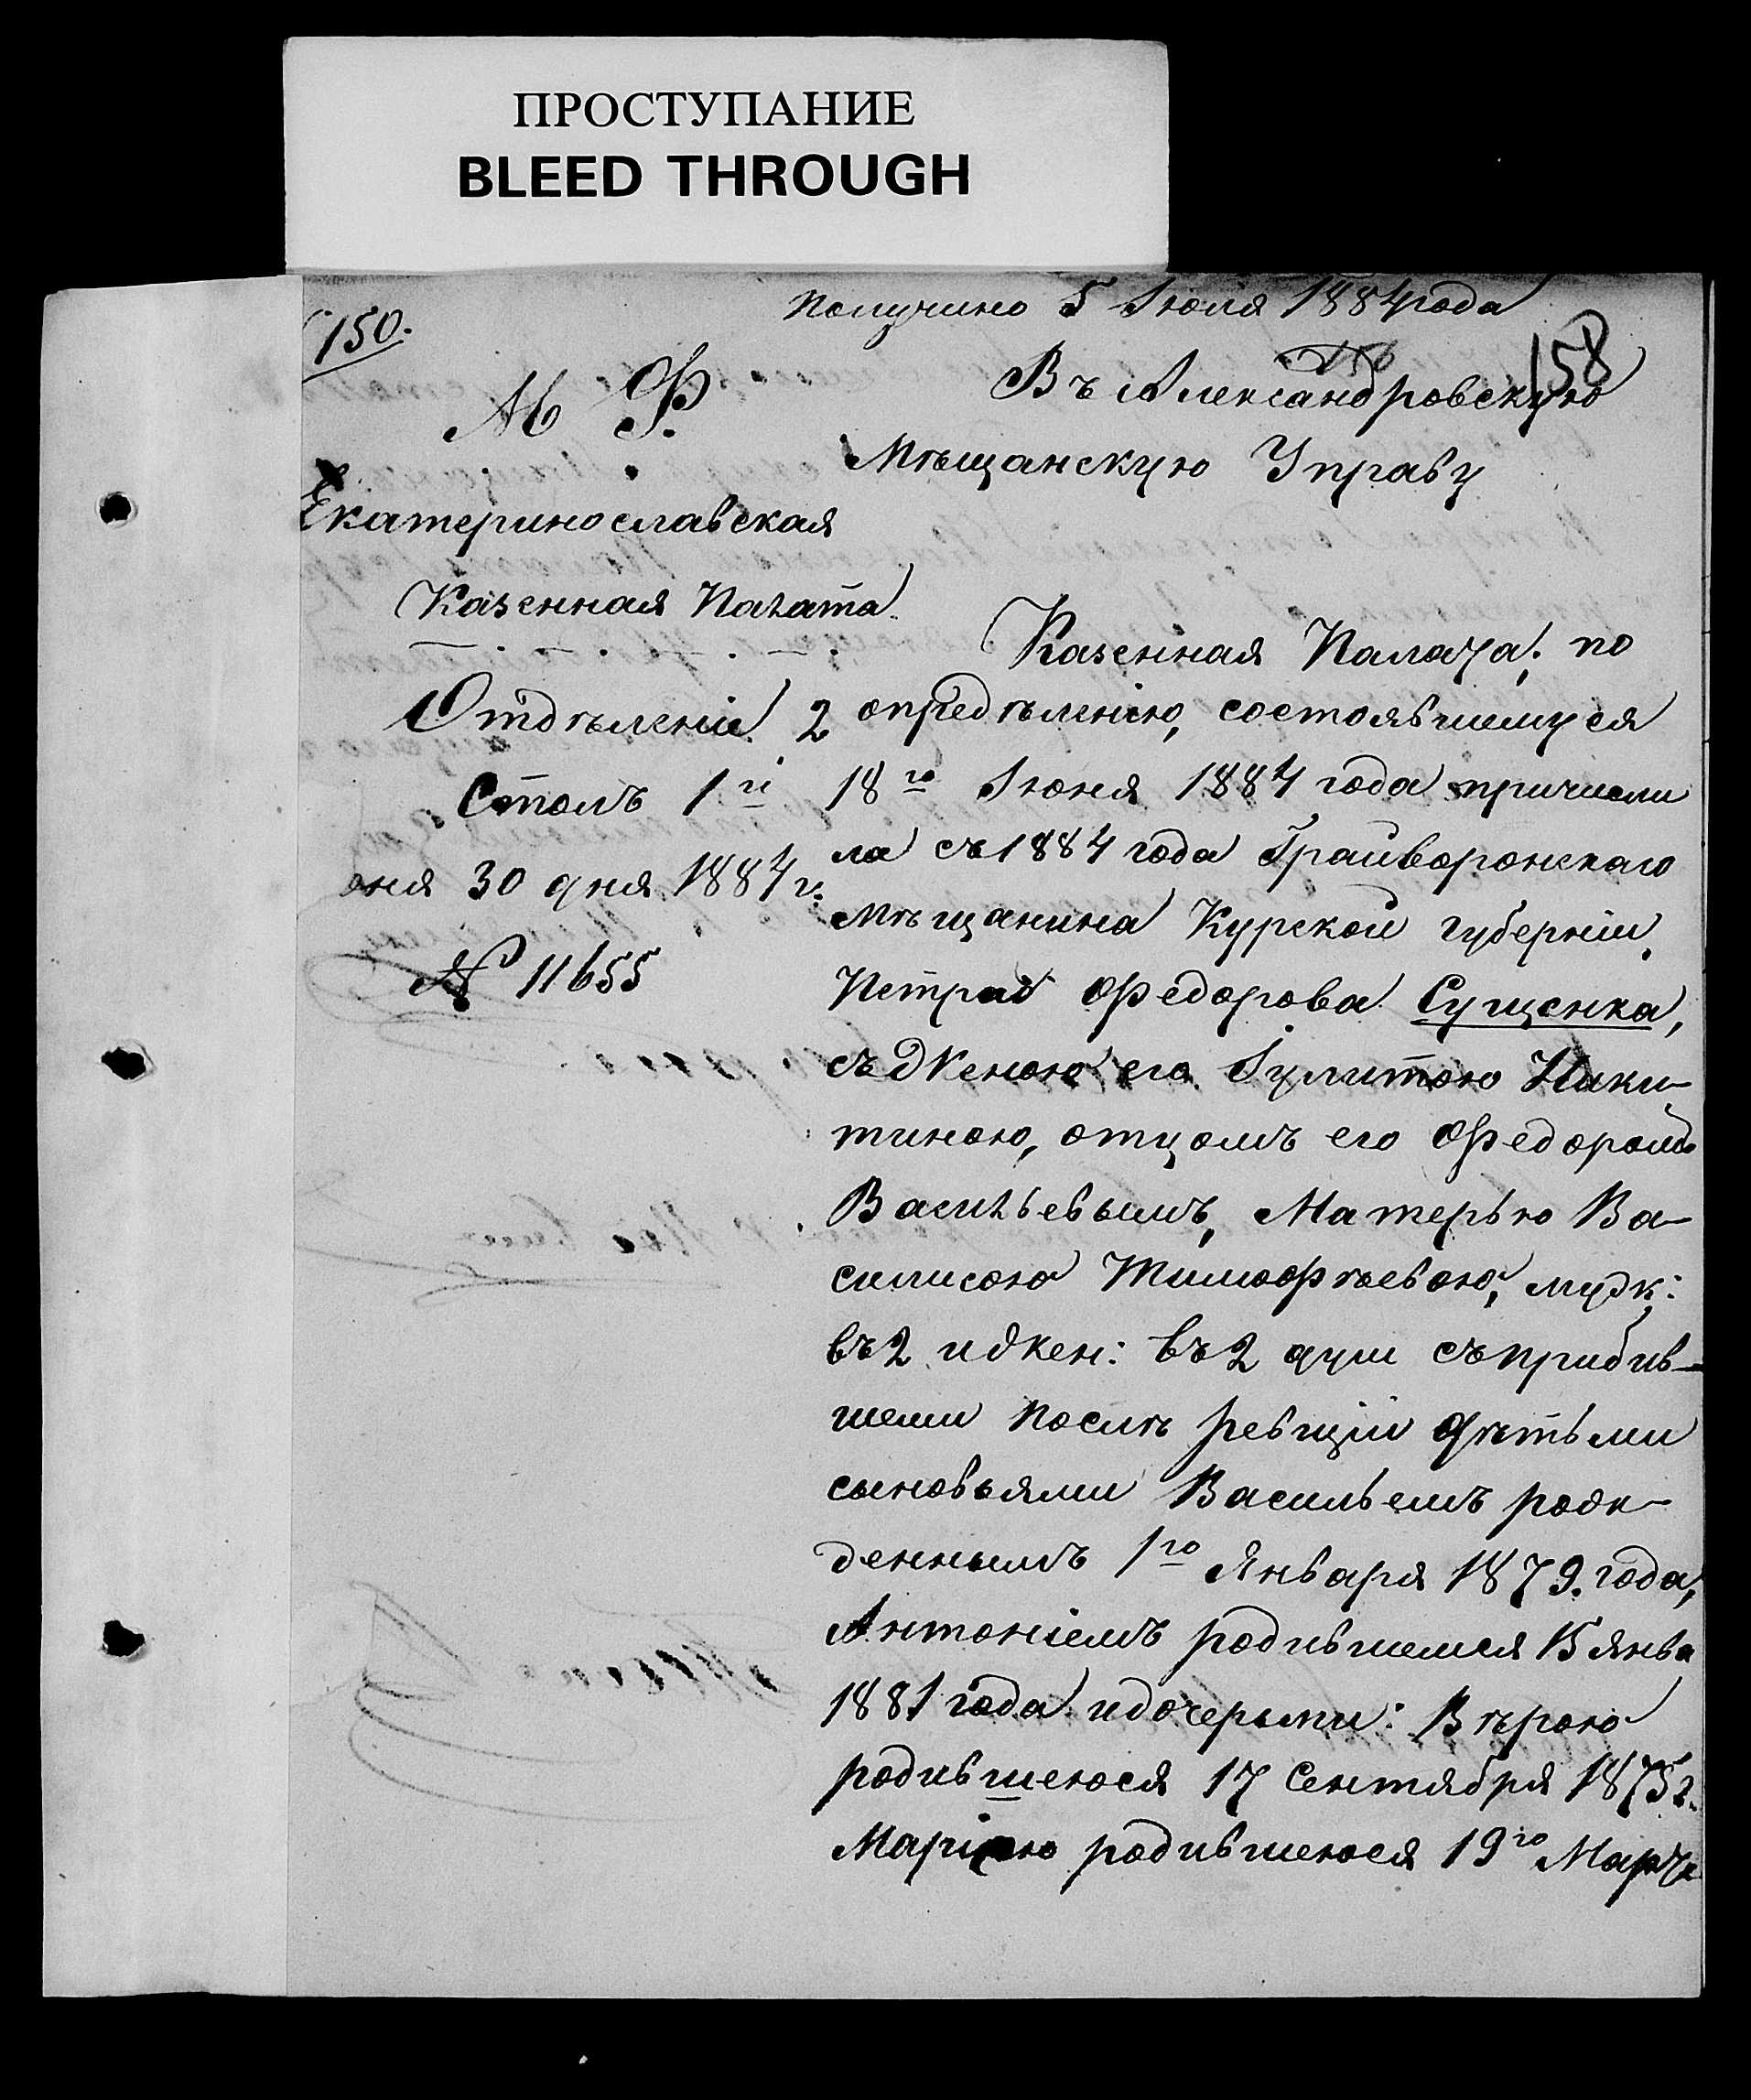 ПРОСТУПАНИЕ
BLEED THROUGH
Получино 5 Іюля 1884 года
150.
158
М Ф.
Екатеринославская
Казенная Палата.
Отдѣленіе 2
Столъ 1й
юня 30 дня 1884 г.
№ 11655
Въ Александровскую
Мѣщанскую Управу
Казенная Палата, по
опредѣленію, состоявшемуся
18го Іюня 1884 года причисли
ла съ 1884 года Грайворонскаго
мѣщанина Курской губерніи,
Петра Федорова Сущенка,
съ женою его Іулитою Ники-
тиною, отцомъ его Федоромъ
Васильевымъ, Матерью Ва-
силисою Тимофѣевою, муж:
въ 2 и жен: въ 2 душ съ прибыв-
шеми послѣ ревизіи дѣтьми
сыновьями Васильемъ рож-
деннымъ 1го Января 1879. года,
Антоніемъ родившемся 15 Янва
1881 года и дочерьми: Вѣрою
родившеюся 17 Сентября 1875 г.
Маріею родившеюся 19го Марта